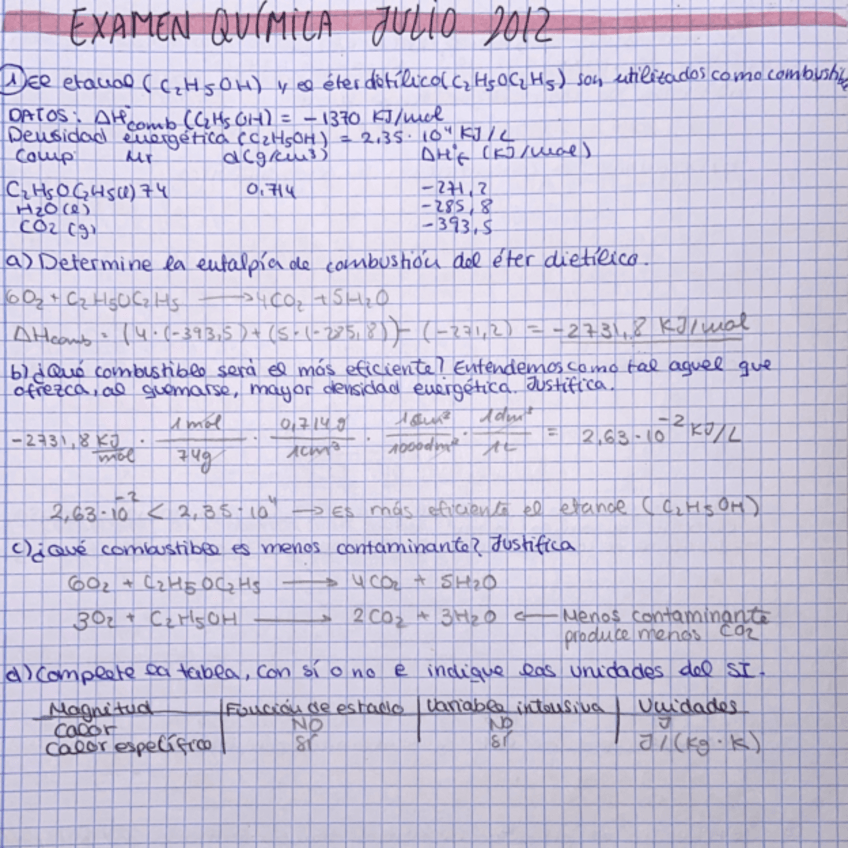 EXAMEN QUÍMICA JULIO 2012
1) El etanol (C2H5OH) y el éter dietílico (C2H5OC2H5) son utilizados como combustible
DATOS: ΔH°comb (C2H5OH) = -1370 KJ/mol
Densidad energética (C2H5OH) = 2,35·10⁴ KJ/L
Comp Mr d(g/cm³) ΔH°f (KJ/mol)
C2H5OC2H5(l) 74 0,714 -271,2
H2O(l) -285,8
CO2(g) -393,5
a) Determine la entalpía de combustión del éter dietílico.
6O2 + C2H5OC2H5 → 4CO2 + 5H2O
ΔHcomb = (4·(-393,5) + (5·(-285,8)) - (-271,2) = -2731,8 KJ/mol
b) ¿Qué combustible será el más eficiente? Entendemos como tal aquel que
ofrezca, al quemarse, mayor densidad energética. Justifica.
-2731,8 KJ/mol · 1mol/74g · 0,714g/1cm³ · 1cm³/1000dm³ · 1dm³/1L = 2,63·10⁻² KJ/L
2,63·10⁻² < 2,35·10⁴ → Es más eficiente el etanol (C2H5OH)
c) ¿Qué combustible es menos contaminante? Justifica
6O2 + C2H5OC2H5 → 4CO2 + 5H2O
3O2 + C2H5OH → 2CO2 + 3H2O ← Menos contaminante
produce menos CO2
d) Complete la tabla, con sí o no e indique las unidades del SI.
Magnitud Función de estado Variable intensiva Unidades
Calor NO NO J
Calor específico SÍ SÍ J/(Kg·K)